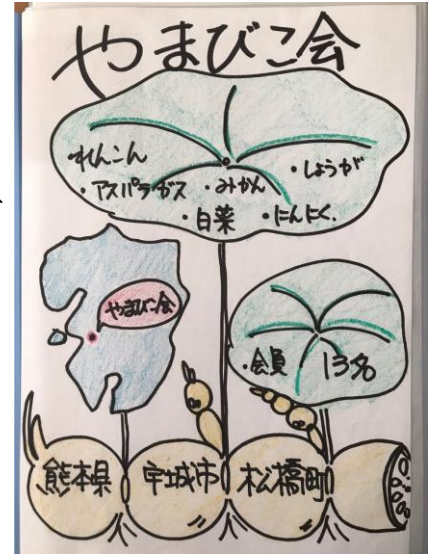 やまびこ会
れんこん
・しょうが
・アスパラガス ・みかん
・白菜 ・にんにく.
やまびこ会
・会員 13名
熊本県 宇城市 松橋町